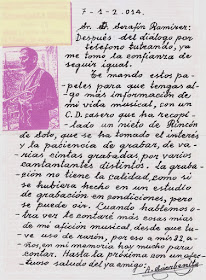 7-1-2.014
Sr. D. Serafín Ramírez:
Después del diálogo por
teléfono tuteando, ya
me tomo la confianza de
seguir igual.
Te mando estos pa-
peles para que tengas al-
go más información de
mi vida musical, con un
C.D. casero que ha recopi-
lado un nieto de Rincón
de Soto, que se ha tomado el interés
y la paciencia de grabar, de va-
rias cintas grabadas por varios
cantantes distintos. La graba-
ción no tiene la calidad, como si
se hubiera hecho en un estudio
de grabación en condiciones, pero
se puede oir. Cuando hablemos o-
tra vez te contaré más cosas mías
de mi afición musical, desde que tu-
ve uso de razón, por eso a mis 82 a-
ños, en mi memoria hay mucho para
contar. Hasta la próxima con un afec-
tuoso saludo del ya amigo: